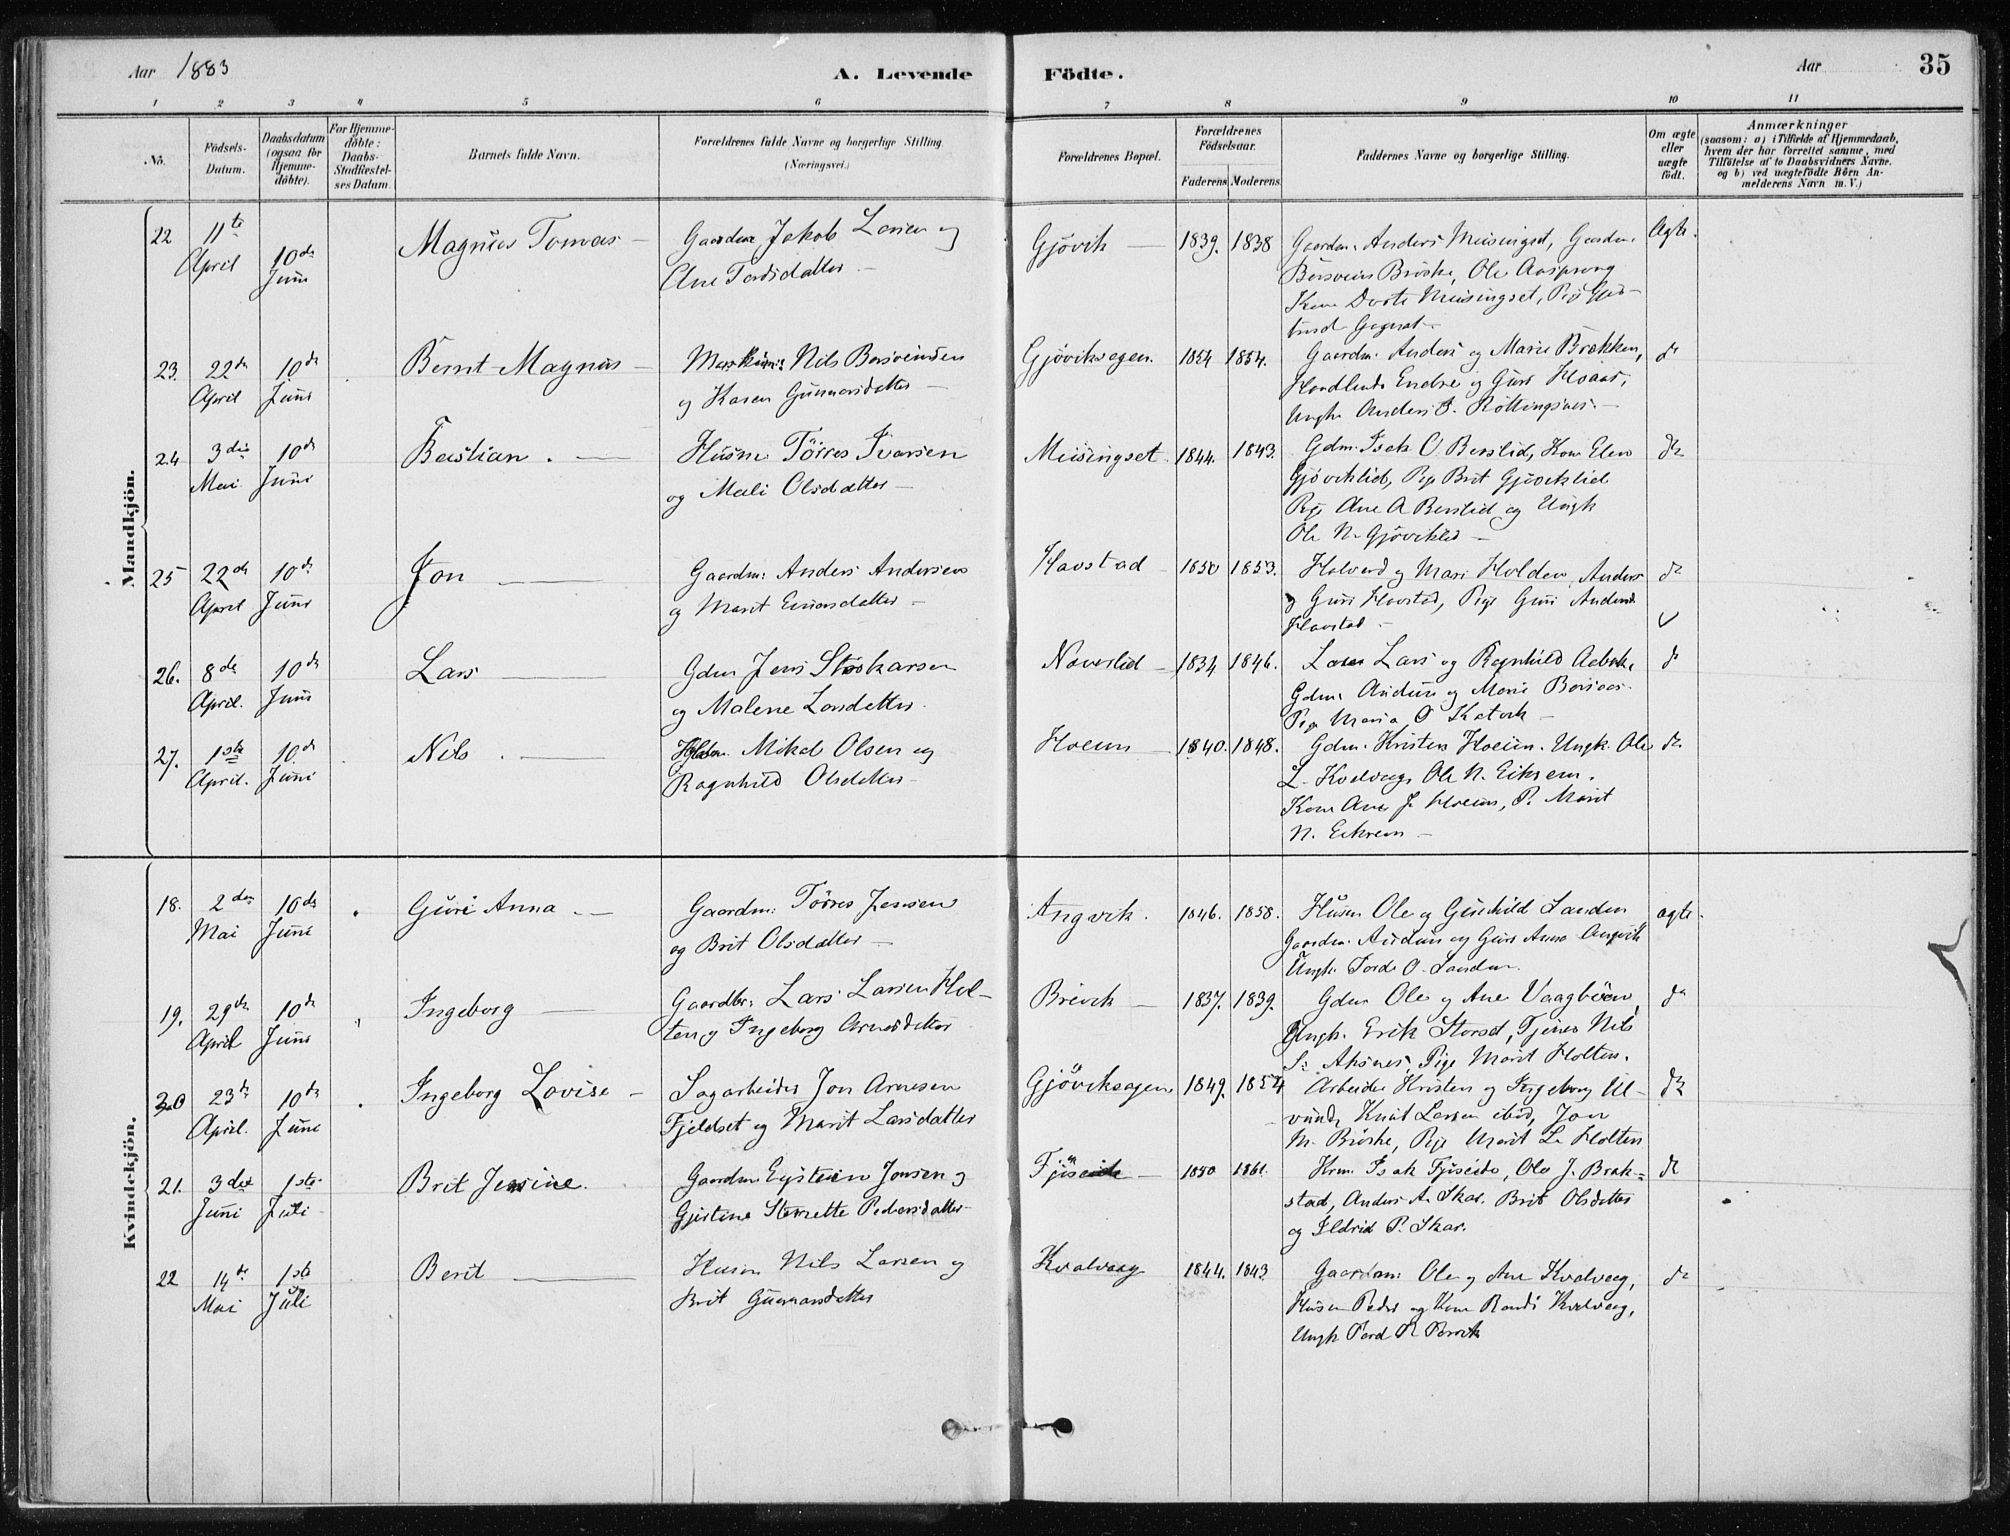 Aar 1883
A. Levende
Födte.
Aar
35
1 2 3 4 5 6 7 8 9 10 11
No.
Födsels-
Datum.
Daabsdatum
(ogsaa for
Hjemme-
döbte).
For Hjemme-
döbte:
Daabs-
Stadfæstel-
ses Datum.
Barnets fulde Navn.
Forældrenes fulde Navne og borgerlige Stilling
(Næringsvei.)
Forældrenes Bopæl.
Forældrenes
Födselsaar.
Faderens Moderens
Faddernes Navne og borgerlige Stilling.
Om ægte
eller
uægte
födt.
Anmærkninger
(saasom: a) i Tilfælde af Hjemmedaab,
hvem der har forrettet samme, med
Tilföielse af to Daabsvidners Navne.
og b) ved uægtefödte Börn An-
melderens Navn m. V.)
Mandkjön.
22 11te April 10de Juni Magnus Tomas —
Gaardm. Jakob Larsen og
Ane Tordsdatter —
Gjövik — 1839. 1838
Gaardm. Anders Meisingset, Gaardm.
Bersvein Bröske, Ole Aasprong
Kone Dorte Meisingset, Pige
Ægte
23. 22de April 10de Juni Bernt Magnus —
Nils Bersveinsen
og Karen Gunnarsdatter —
Gjöviksagen. 1854 1854.
Gaardm. Anders og Marie Brækken,
Endre og Guri Hoaas,
Ungk. Anders I. Röttingsnes. —
do
24 3die Mai 10de Juni Bastian . —
Husm. Törres Ivarsen
og Mali Olsdatter —
Meisingset 1844. 1843.
Gdm. Isak O Berslid, Kone Elen
Gjöviklid, Pige Brit Gjöviklid
Pige Ane A Berslid og Ungk
Ole N. Gjöviklid —
do
25 22de April 10de Juni Jon —
Gaardm. Anders Andersen
og Marit Einarsdatter —
Havstad — 1850 1853.
Halvard og Mari Holden, Anders
og Guri Havstad, Pige Guri Anders
Havstad —
do
26. 8de April. 10de Juni Lars —
Gdm Jens
og Malene Larsdatter.
Naverlid — 1834 1846.
Lars og Ragnhild
Gdm. Audun og Marie
Pige Maria O
do
27. 1ste April. 10de Juni Nils . —
Mikal Olsen og
Ragnhild Olsdatter —
Hoem — 1840. 1848.
Gdm. Kristen Hoem. Ungk. Ole
L. Kvalvaag Ole N. Eikrem.
Kone Ane J. Hoem, P. Marit
N. Eikrem —
do
Kvindekjön.
18. 2den Mai 10de Juni Guri Anna . —
Gaardm: Törres Jensen
og Brit Olsdatter —
Angvik. 1846. 1858.
Husm Ole og Gunhild Sanden
Gaardm. Audun og Guri Anna Angvik
Ungk. Tord O. Sanden.
ægte.
19. 29de April 10de Juni Ingeborg —
Gaardbr: Lars Larsen Hol-
ten og Ingeborg Arnesdatter
Brevik — 1837. 1839.
Gdm Ole og Ane Vaagböen,
Ungk. Erik Storset, Tjener Nils
S. Aksnes, Pige Marit Holten.
do
20 23de April. 10de Juni Ingeborg Lovise —
Sagarbeider Jon Arnesen
Fjeldset og Marit Larsdatter
Gjöviksagen 1849. 1854
Arbeider Kristen og Ingeborg Ul-
vund, Knut Larsen ibid, Jon
M. Bröske, Pige Marit L. Holten
do
21. 3die Juni 1ste Juli Brit Jensine.
Gaardm. Eystein Jonsen og
Gjertine Pedersdatter —
1850 1861.
Isak Ole J. Brak-
stad, Anders A. Skar. Brit Olsdatter
og Ildrid P. Skar.
do
22 14de Mai 1ste Juli Berit —
Husm Nils Larsen og
Brit Gunnarsdatter
Kvalvaag 1844. 1843
Gaardm: Ole og Ane Kvalvaag,
Husm Peder og Kone Randi Kvalvaag,
Ungk
do